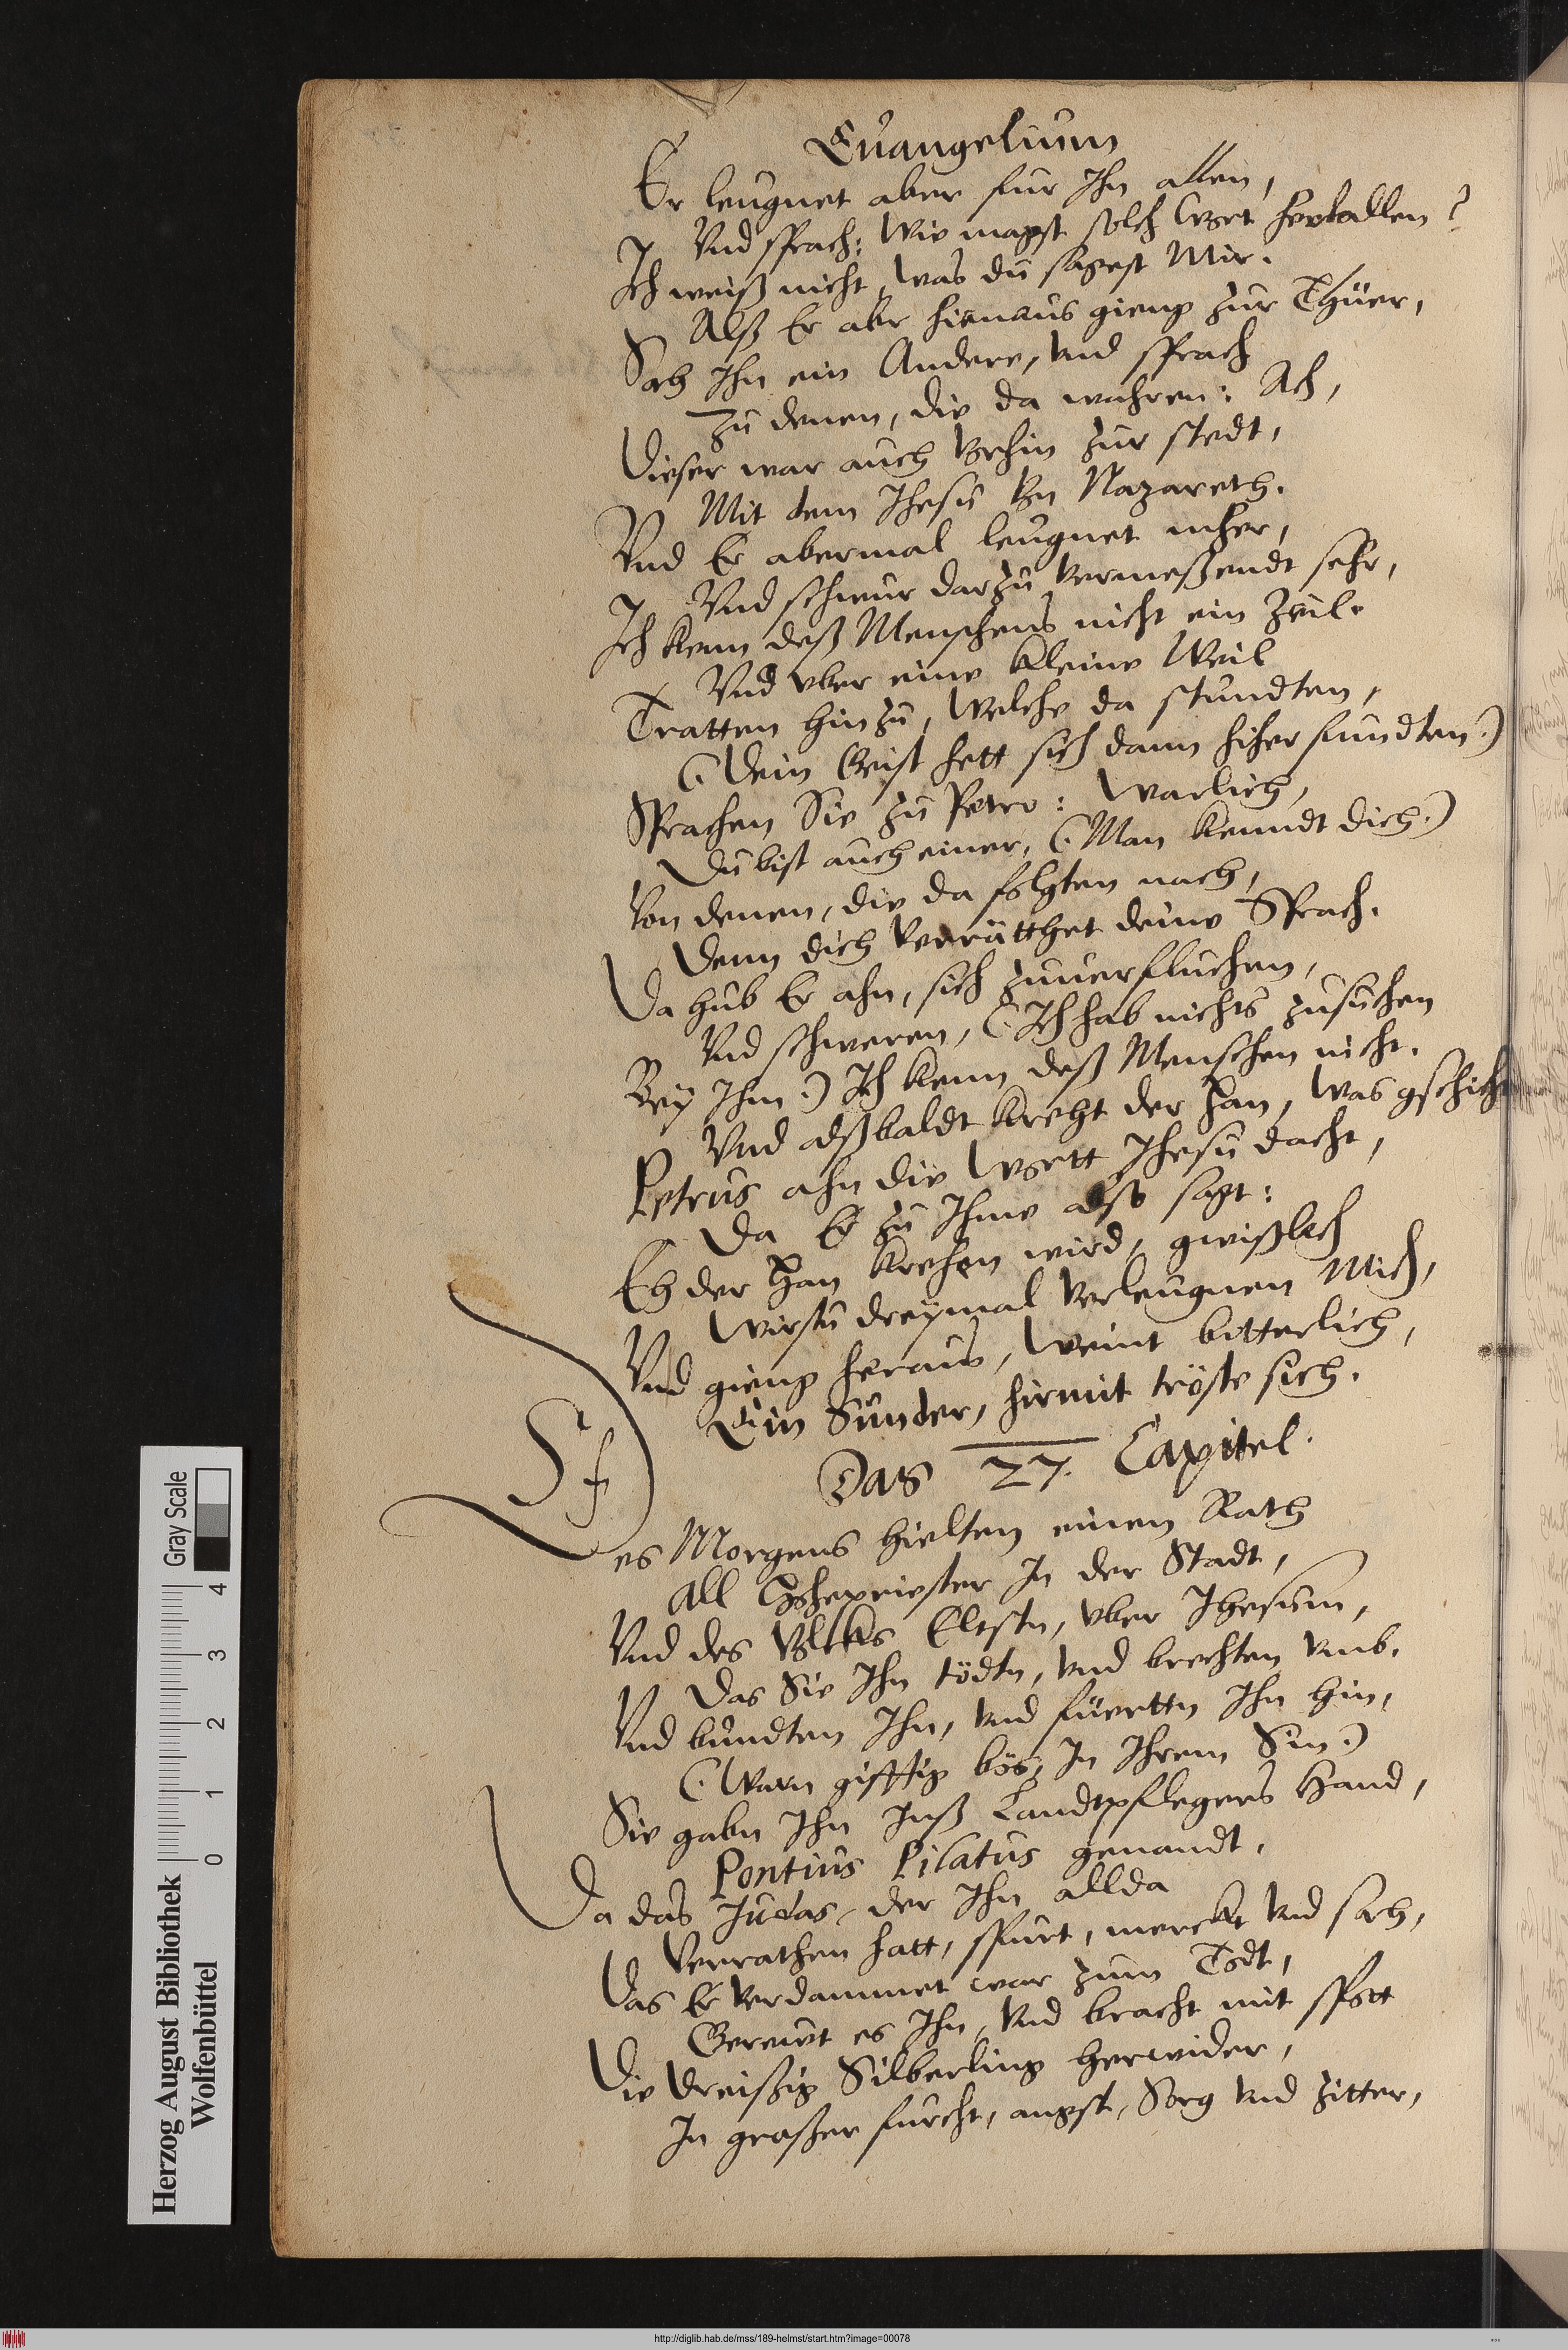 Euangelium
Er leugnet aber fur Ihn allen,
Vnd sprach: Wie magst solch Wort herkallen?
Ich weiß nicht, was du sagest Mir.
Alß Er abr hienaus gieng zur Thüer,
Sah Ihn ein Andere, vnd sprach
Zu denen, die da wahren: Ach,
Dieser war auch vorhin zur stedt,
Mit dem Jhesu von Nazareth.
Vnd Er abermal leugnet mher,
Vnd schwur darzu vermeßendt sehr,
Ich kenn deß Menschens nicht ein zeil.
Vnd vber eine kleine Weil
Tratten hinzu, Welche da stundten,
(Dein Geist hett sich dann hiher fundten.)
Sprachen Sie zu Petro: Warlich,
Du bist auch einer, (Man kenndt dich.)
Von denen, die da folgten nach,
Denn dich verrätthet deine Sprach.
Da hub Er ahn, sich zuuerfluchen,
Vnd schweren, (Ich hab nichts zusuchen
Bey Ihm.) Ich kenn deß Menschen nicht.
Vnd alßbaldt kreht der Han, Was gschicht
Petrus ahn die Wortt Jhesu dacht,
Da Er zu Ihme also sagt:
Eh der Han krehen wird, gwißlich
Wirstu dreymal verleugnen Mich,
Vnd gieng heraus, Weint bitterlich,
Ein Sünder, hirmit tröste sich.
Das 27. Capitel.
Des Morgens hielten einen Rath
All Hohepriester In der Stadt,
Vnd des Volcks Eltstn, vber Jhesum,
Das Sie Ihn tödtn, vnd brechten vmb.
Vnd bundten Ihn, vnd füerttn Ihn hin,
(Warn gifftig bös, In Ihrem Sin.)
Sie gabn Ihn Inß Landtpflegers Hand,
Pontius Pilatus genandt.
Da das Judas, der Ihn allda
Verrathen hatt, spurt, merckt vnd sah,
Das Er verdammet war zum Todt,
Gerewt es Ihn, Vnd bracht mit spott
Die Dreißig Silberling herwider,
In großer furcht, angst, Sorg vnd zitter,
Herzog August Bibliothek
Wolfenbüttel
Gray Scale
0 1 2 3 4
http://diglib.hab.de/mss/189-helmst/start.htm?image=00078